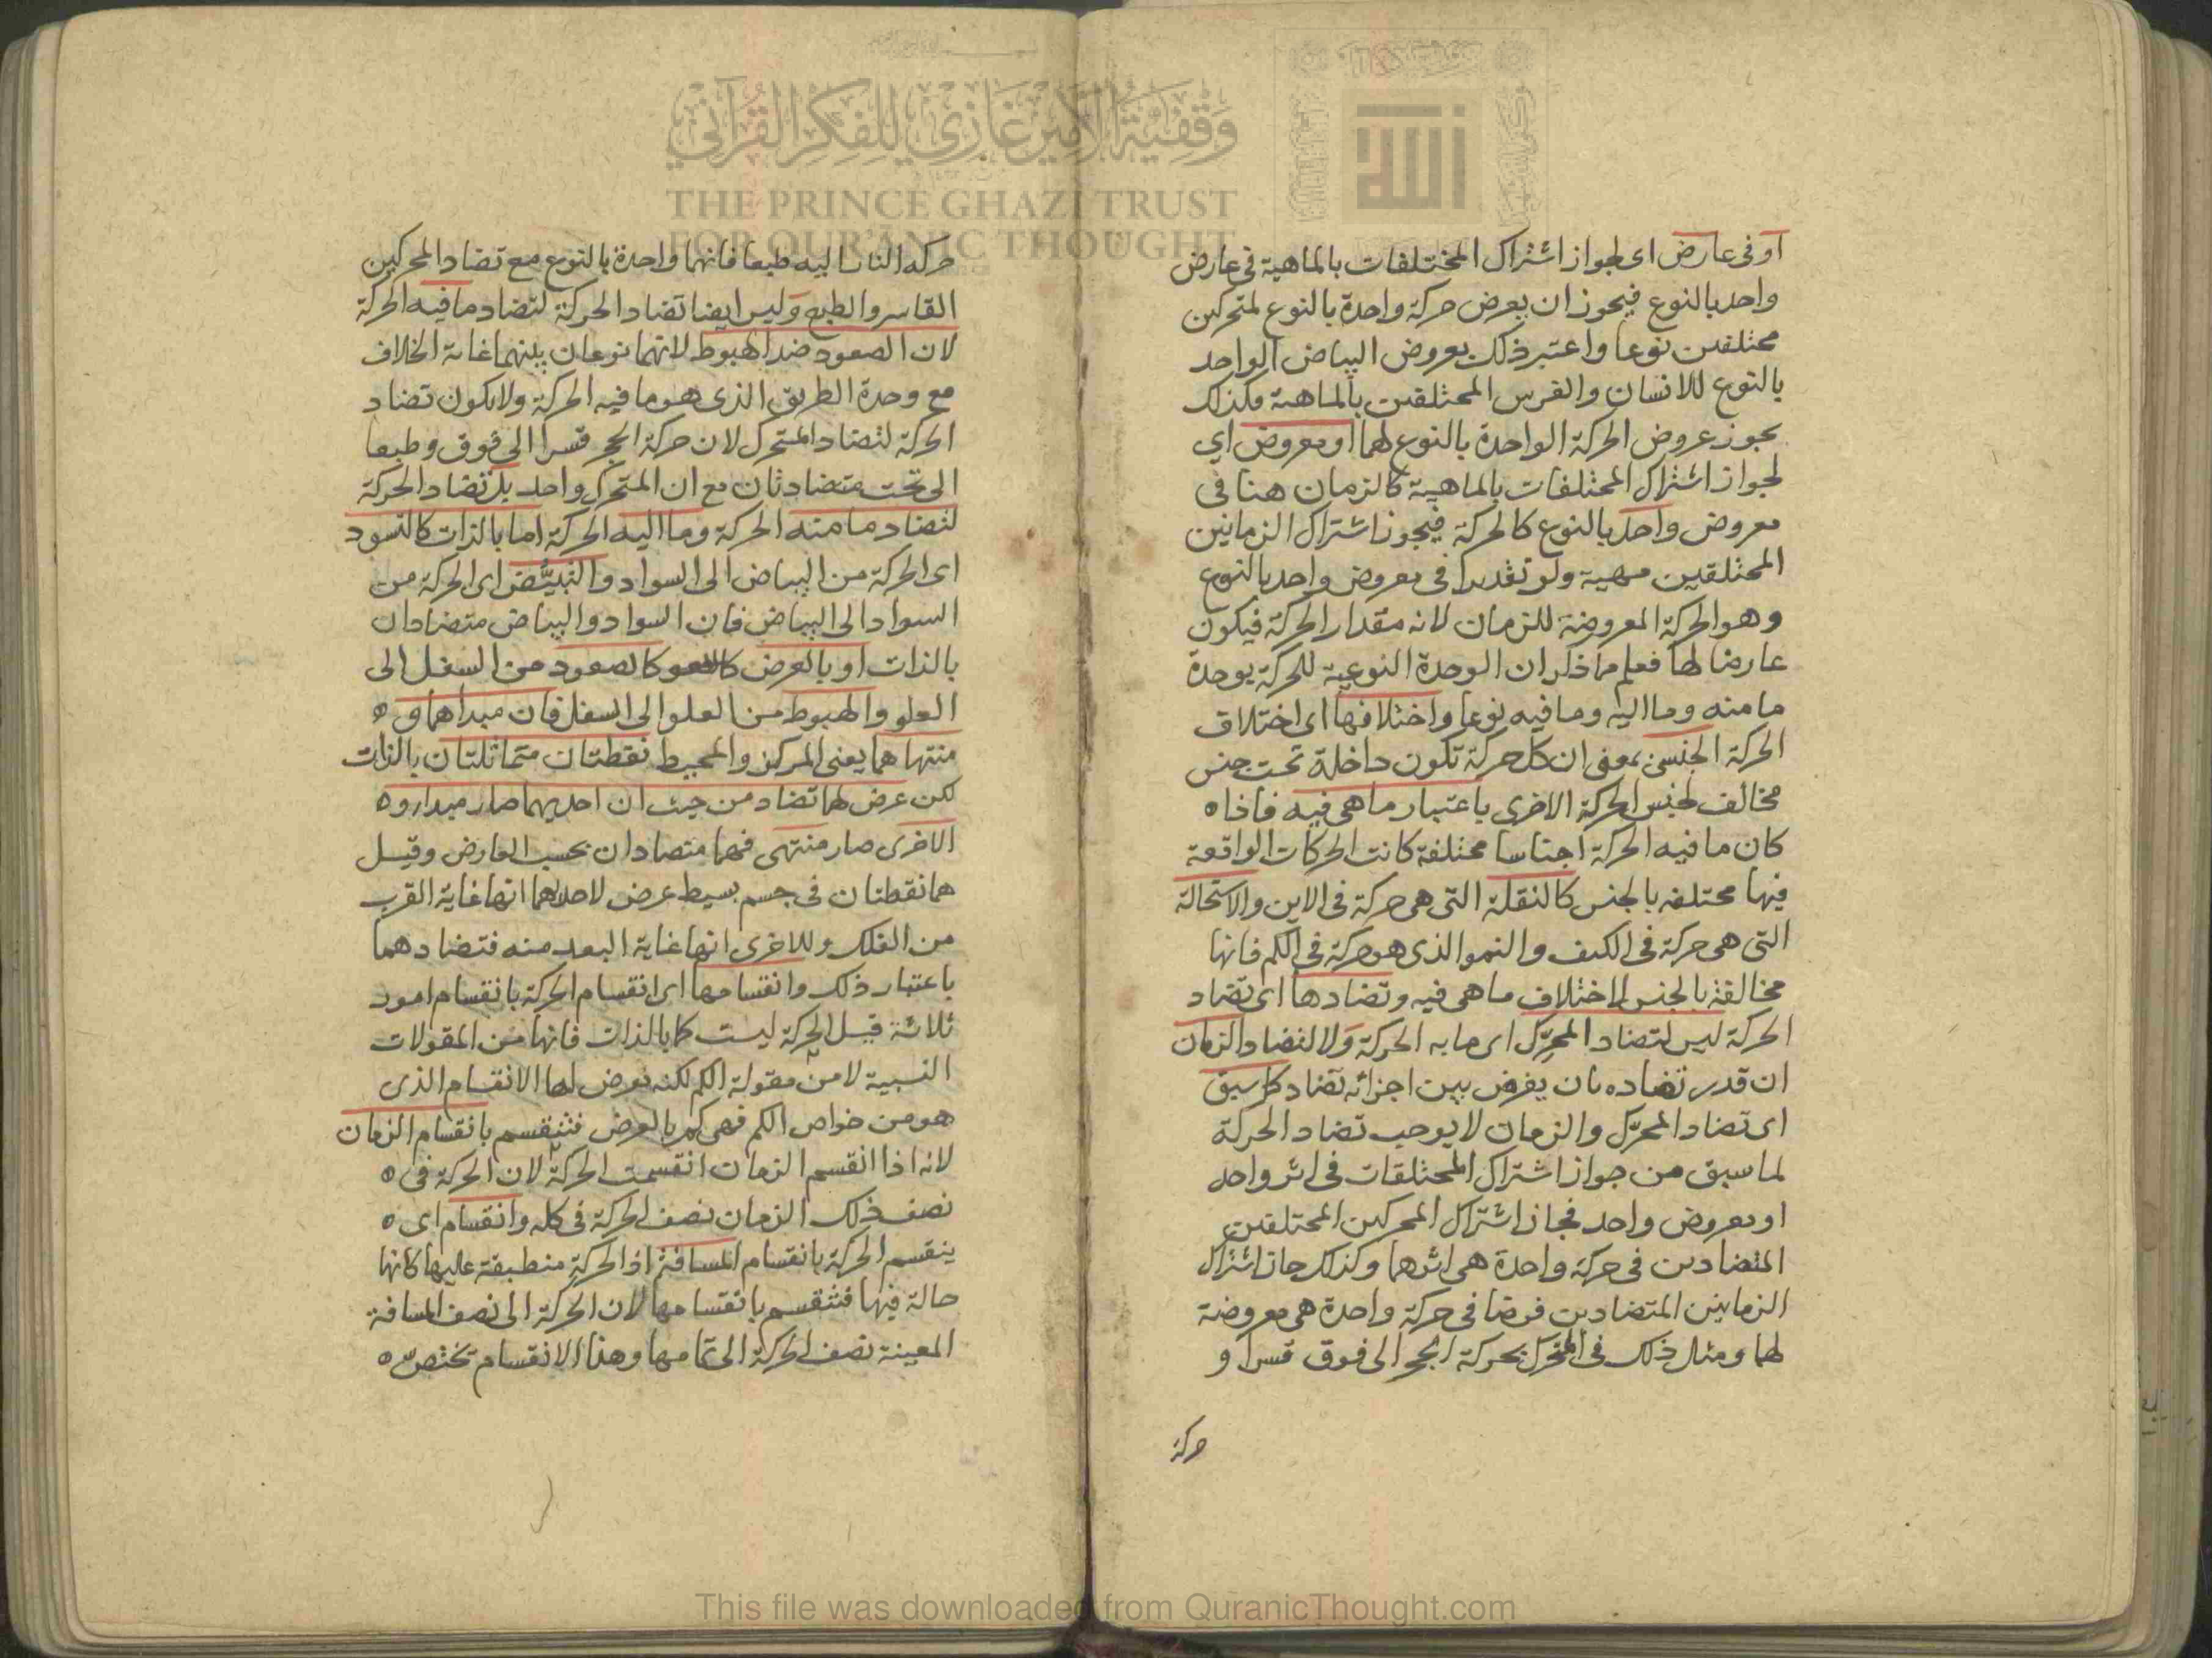 او فى عارض اى لجواز اشتراك المختلفات بالماهية فى عارض
واحد بالنوع فيجوز ان يعرض حركة واحدة بالنوع لمتحركين
مختلفين نوعا واعتبر ذلك بعروض البياض الواحد
بالنوع للانسان والفرس المختلفين بالماهية فكذلك
يجوز عروض الحركة الواحدة بالنوع لهما او معروض اي
لجواز اشتراك المختلفات بالماهية كالزمان هنا فى
معروض واحد بالنوع كالحركة فيجوز اشتراك الزمانين
المختلفين مهية ولو تقديرا فى معروض واحد بالنوع
وهو الحركة المعروضة للزمان لانه مقدار الحركة فيكون
عارضا لها فعلم مما ذكر ان الوحدة النوعية للحركة بوحدة
ما منه وما اليه وما فيه نوعا واختلافها اى اختلاف
الحركة الجنسى بمعنى ان كل حركة تكون داخلة تحت جنس
مخالف لجنس الحركة الاخرى باعتبار ما هى فيه فاذا ه
كان ما فيه الحركة اجناسا مختلفة كانت الحركات الواقعة
فيها مختلفه بالجنس كالنقلة التى هى حركة فى الاين والاستحالة
التى هى حركة فى الكيف والنمو الذى هو حركة فى الكم فانها
مخالفة بالجنس لاختلاف ما هى فيه وتضادها اى تضاد
الحركة ليس لتضاد المحرّك اى ما به الحركة ولا لتضاد الزمان
ان قدر تضاده بان يفرض بين اجزائه تضاد كما سبق
اى تضاد المحرّك والزمان لا يوجب تضاد الحركة
لما سبق من جواز اشتراك المختلفات فى اثر واحد
او معروض واحد فجاز اشتراك المحركين المختلفين
المتضادين فى حركة واحدة هى اثرهما وكذلك جاز اشتراك
الزمانين المتضادين فرضا فى حركة واحدة هى معروضة
لهما ومثال ذلك فى المتحرك بحركة الحجر الى فوق قسرا و
حركة
حركه النار اليه طبعا فانهما واحدة بالنوع مع تضاد المحركين
القاسر والطبع وليس ايضا تضاد الحركة لتضاد ما فيه الحركة
لان الصعود ضد الهبوط لانهما نوعان بينهما غاية الخلاف
مع وحدة الطريق الذى هو ما فيه الحركة ولا يكون تضاد
الحركة لتضاد المتحرك لان حركة الحجر قسرا الى فوق وطبعا
الى تحت متضادتان مع ان المتحرك واحد بل تضاد الحركة
لتضاد ما منه الحركة وما اليه الحركة اما بالذات كالتسود
اى الحركة من البياض الى السواد والتبيّض اى الحركة من
السواد الى البياض فان السواد والبياض متضادان
بالذات او بالعرض كالصعود من السفل الى
العلو والهبوط من العلو الى السفل فان مبداهما و ه
منتهاهما يعنى المركز والمحيط نقطتان متماثلتان بالذات
لكن عرض لهما تضاد من حيث ان احديهما صار مبدا و ه
الاخرى صار منتهى فهما متضادان بحسب العارض وقيل
هما نقطتان فى جسم بسيط عرض لاحداهما انها غاية القرب
من الفلك وللاخرى انها غاية البعد منه فتضادهما
باعتبار ذلك وانقسامها اى انقسام الحركة بانقسام امور
ثلاثة قيل الحركة ليست كما بالذات فانها من المقولات
النسبية لا من مقولة الكم لكنه يعرض لها الانقسام الذى
هو من خواص الكم فهى كم بالعرض فتنقسم بانقسام الزمان
لانه اذا انقسم الزمان انقسمت الحركة لان الحركة فى ه
نصف ذلك الزمان نصف الحركة فى كله وانقسام اى ه
ينقسم الحركة بانقسام المسافة اذ الحركة منطبقة عليها كانها
حالة فيها فتنقسم بانقسامها لان الحركة الى نصف المسافة
المعينة نصف الحركة الى تمامها وهذا الانقسام تختصّ ه
وقفية الأمير غازي للفكر القرآني
THE PRINCE GHAZI TRUST
FOR QUR'ANIC THOUGHT
This file was downloaded from QuranicThought.com